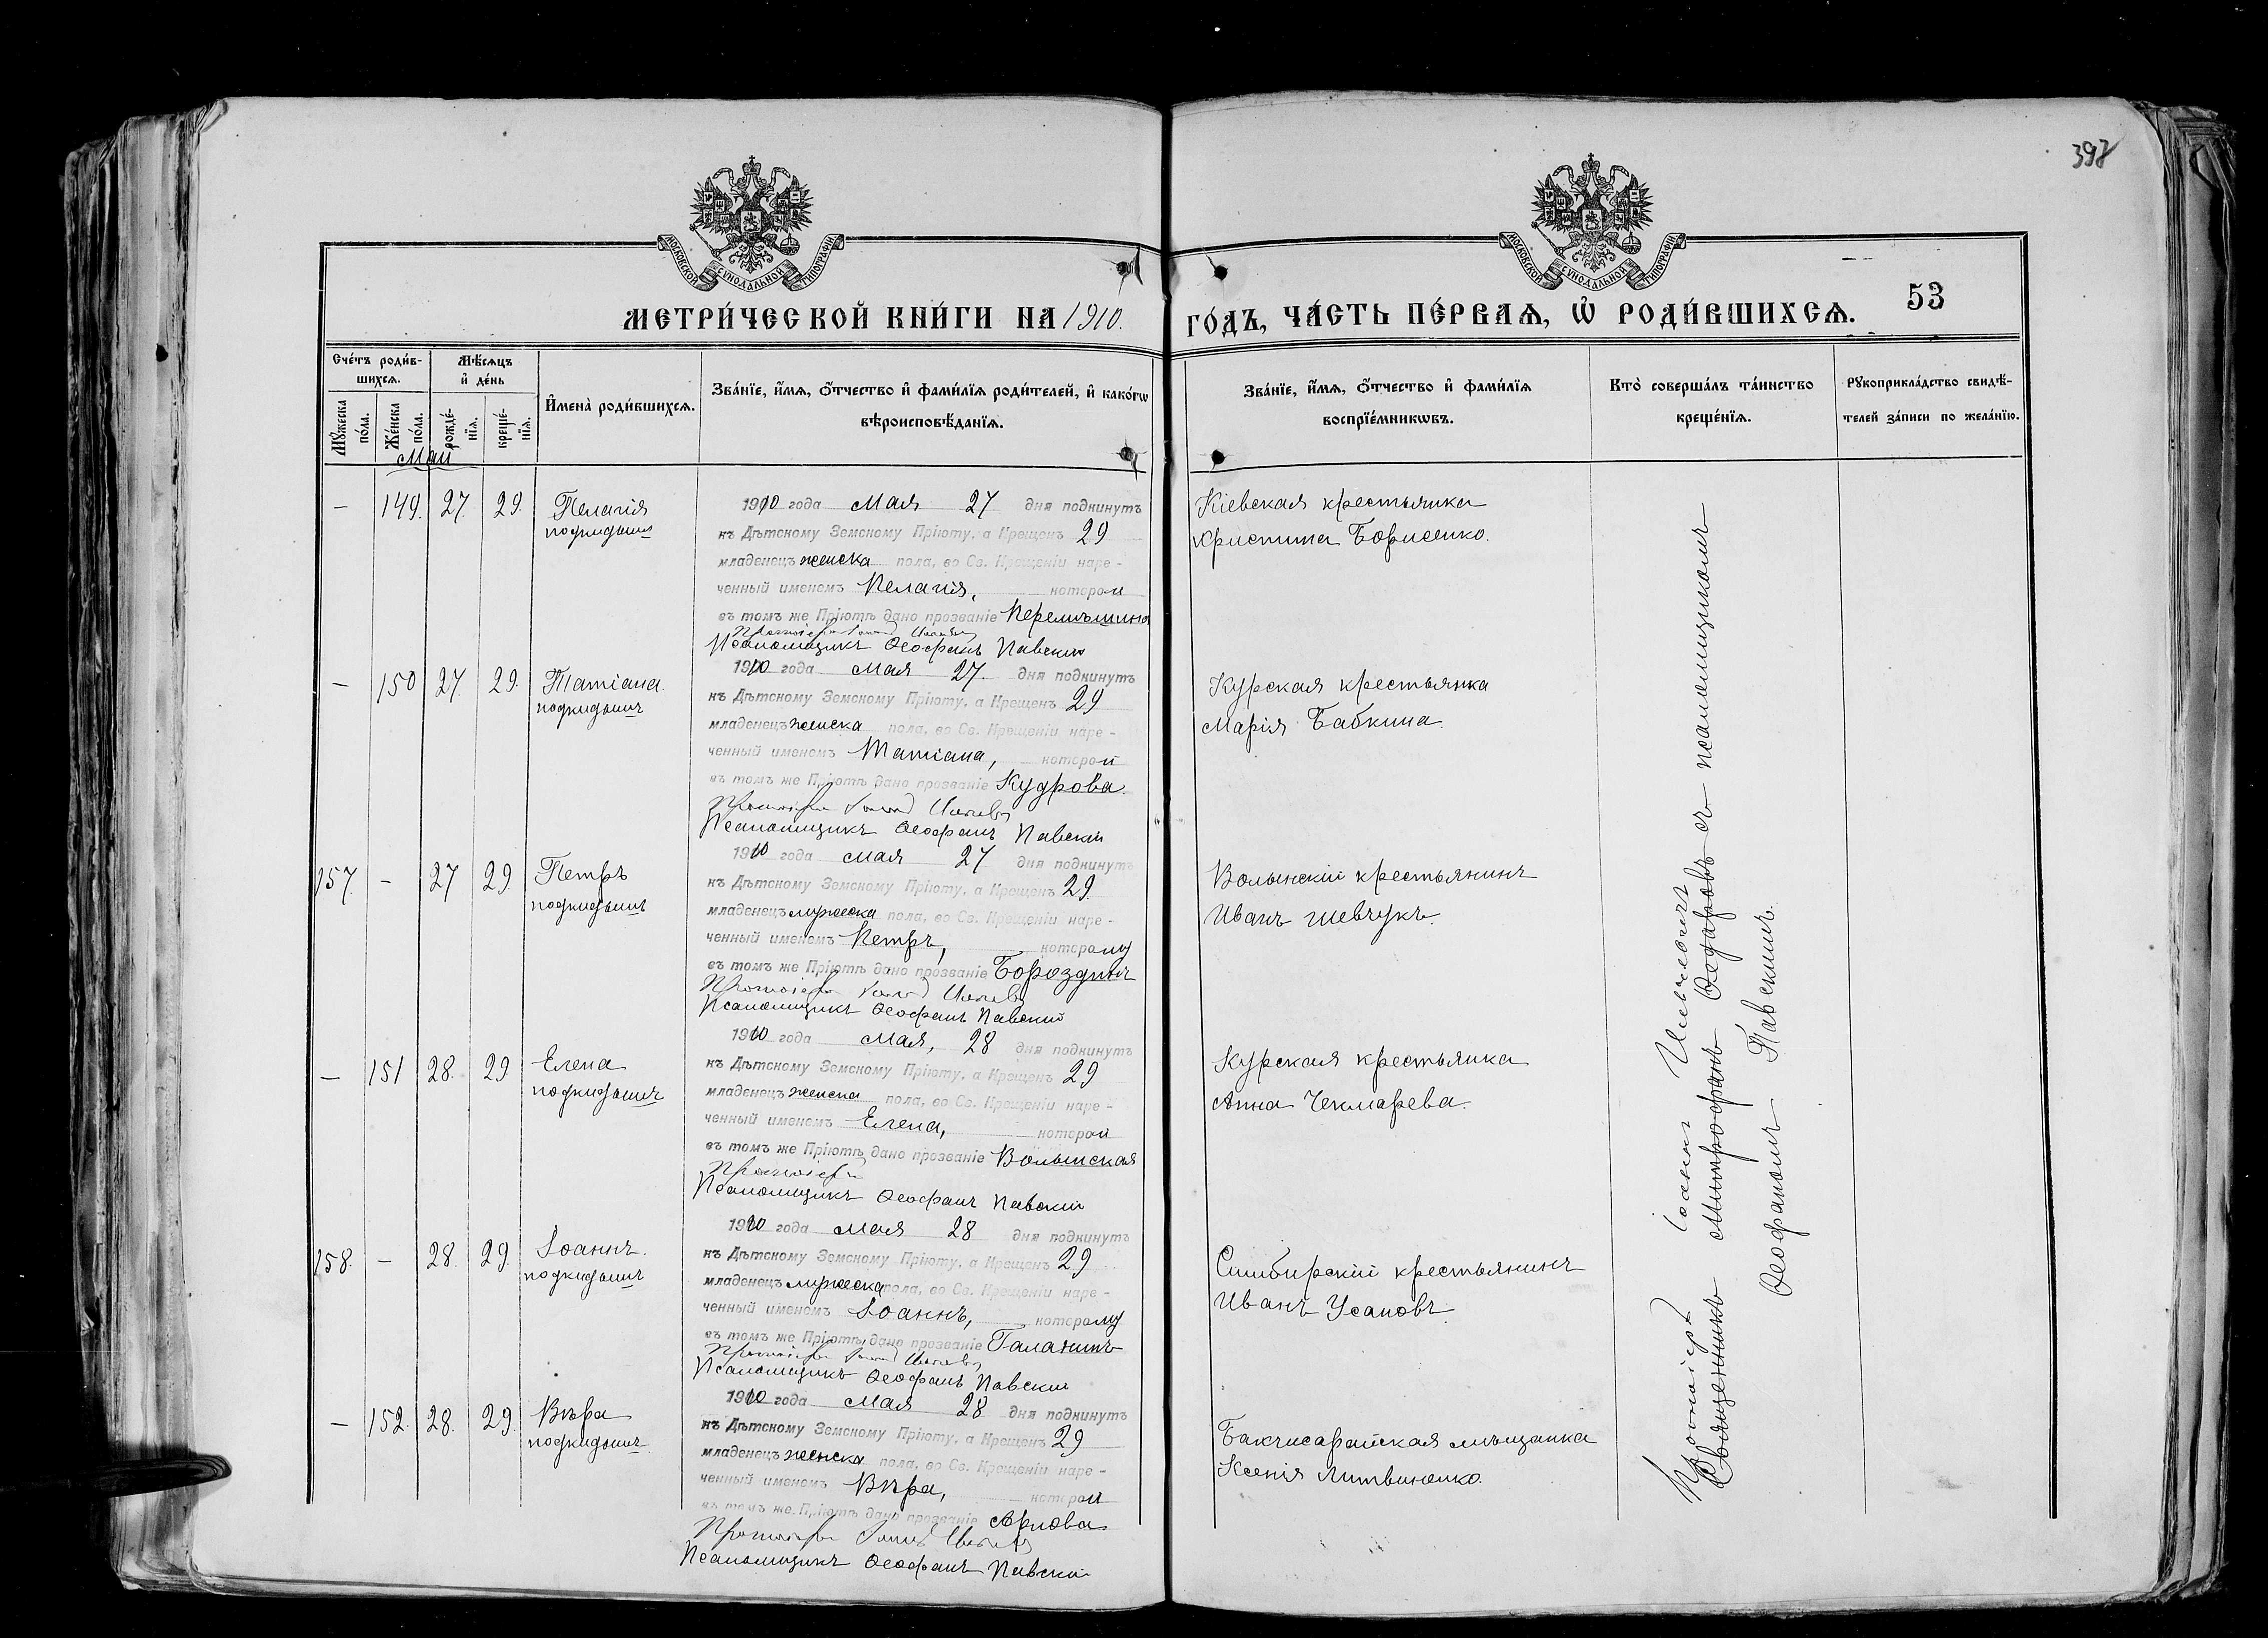 398
МОСКОВСКОЙ СУНОДАЛЬНОЙ ТИПОГРАФІИ
МОСКОВСКОЙ СУНОДАЛЬНОЙ ТИПОГРАФІИ
МЕТРИ́ЧЕСКОЙ КНИ́ГИ НА 1910.
ГО́ДЪ, ЧА́СТЬ ПЕ́РВАѦ, Ѡ҆ РОДИ́ВШИХСѦ.
53
Сче́тъ роди́в-
шихсѧ.
Мꙋ́жеска по́ла.
Же́нска по́ла.
Мѣ́сѧцъ
и҆ де́нь
рожде́-
нїѧ.
креще́-
нїѧ.
И҆мена̀ роди́вшихсѧ.
Зва́нїе, и҆́мѧ, ѻ҆́тчество и҆ фами́лїѧ роди́телей, и҆ како́гѡ
вѣроисповѣ́данїѧ.
Зва́нїе, и҆́мѧ, ѻ҆́тчество и҆ фами́лїѧ
воспрїе́мниковъ.
Кто̀ соверша́лъ та́инство
креще́нїѧ.
Рꙋкоприкла́дство свидѣ́-
телей за́писи по жела́нїю.
Май
— 149. 27. 29. Пелагія
подкидышъ
1910 года Мая 27 дня подкинутъ
къ Дѣтскому Земскому Пріюту, а Крещенъ 29
младенецъ женска пола, во Св. Крещеніи наре-
ченный именемъ Пелагія, которой
въ томъ же Пріютѣ дано прозваніе
Псаломщикъ Ѳеофанъ Павскій
Кіевская крестьянка
Христина Борисенко.
— 150 27. 29. Татіана.
подкидышъ
1910 года Мая 27. дня подкинутъ
къ Дѣтскому Земскому Пріюту, а Крещенъ 29
младенецъ женска пола, во Св. Крещеніи наре-
ченный именемъ Татіана, которой
въ томъ же Пріютѣ дано прозваніе Кудрова.
Протоіерей
Псаломщикъ Ѳеофанъ Павскій
Курская крестьянка
Марія Бабкина.
157. — 27 29 Петръ
подкидышъ
1910 года Мая 27 дня подкинутъ
къ Дѣтскому Земскому Пріюту, а Крещенъ 29.
младенецъ мужеска пола, во Св. Крещеніи наре-
ченный именемъ Петръ, которому
въ томъ же Пріютѣ дано прозваніе Бороздинъ
Протоіерей
Псаломщикъ Ѳеофанъ Павскій
Волынскій крестьянинъ
Иванъ Шевчукъ.
— 151 28. 29 Елена
подкидышъ
1910 года Мая, 28 дня подкинутъ
къ Дѣтскому Земскому Пріюту, а Крещенъ 29
младенецъ женска пола, во Св. Крещеніи наре-
ченный именемъ Елена, которой
въ томъ же Пріютѣ дано прозваніе Волынская
Протоіерей
Псаломщикъ Ѳеофанъ Павскій
Курская крестьянка
Анна Чекмарева.
158. — 28. 29. Іоаннъ.
подкидышъ
1910 года Мая 28 дня подкинутъ
къ Дѣтскому Земскому Пріюту, а Крещенъ 29
младенецъ мужеска пола, во Св. Крещеніи наре-
ченный именемъ Іоаннъ, которому
въ томъ же Пріютѣ дано прозваніе Галанинъ
Протоіерей
Псаломщикъ Ѳеофанъ Павскій
Симбирскій крестьянинъ
Иванъ Усановъ.
— 152. 28. 29. Вѣра
подкидышъ.
1910 года Мая 28 дня подкинутъ
къ Дѣтскому Земскому Пріюту, а Крещенъ 29
младенецъ женска пола, во Св. Крещеніи наре-
ченный именемъ Вѣра, которой
въ томъ же Пріютѣ дано прозваніе
Протоіерей
Псаломщикъ Ѳеофанъ Павскій
Бахчисарайская мѣщанка
Ксенія Литвиненко.
Протоіерей Іоаннъ
Священникъ Митрофанъ Ѳедоровъ съ псаломщикомъ
Ѳеофаномъ Павскимъ.